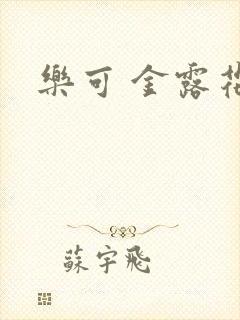 樂可 金露花
蘇宇飛